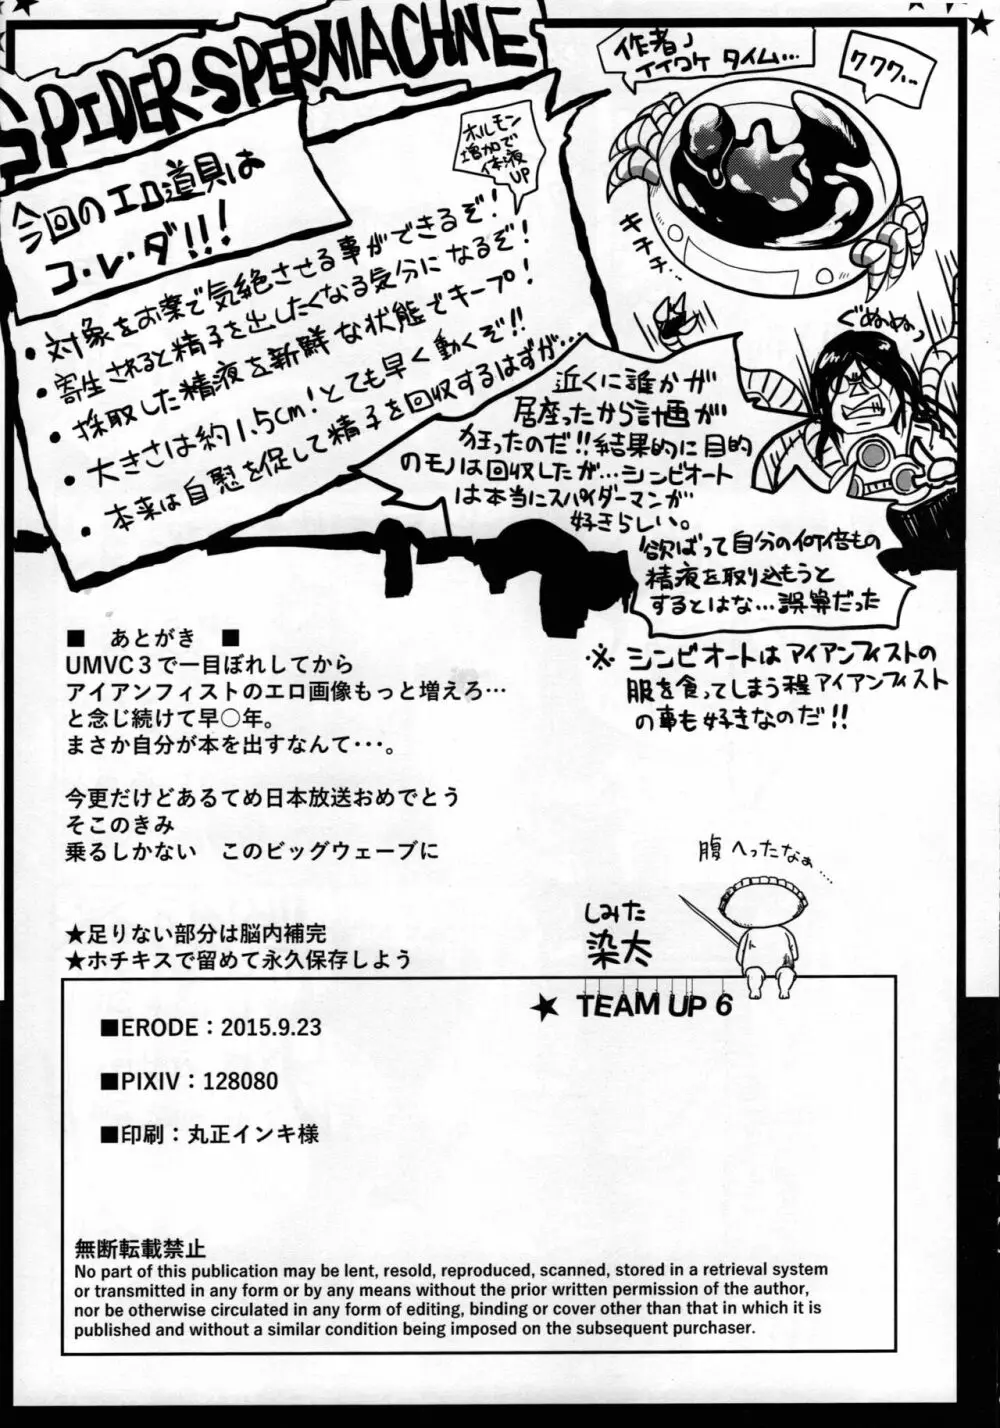 SPIDER-SPERMACHINE
今回のエロ道具は
コ・レ・ダ!!!
ホルモン
増加で
体液
UP
・対象をお薬で気絶させる事ができるぞ!
・寄生されると精子を出したくなる気分になるぞ!
・採取した精液を新鮮な状態でキープ!
・大きさは約1.5cm!とても早く動くぞ!!
・本来は自慰を促して精子を回収するはずが...
作者」
イイワケ タイム...
ククク...
キチチ...
ぐぬぬぅ
近くに誰かが
居座ったから計画が
狂ったのだ!!結果的に目的
のモノは回収したが...シンビオート
は本当にスパイダーマンが
好きらしい。
欲ばって自分の何倍もの
精液を取り込もうと
するとはな...誤算だった
※ シンビオートはアイアンフィストの
服を食ってしまう程アイアンフィスト
の事も好きなのだ!!
■ あとがき ■
UMVC3で一目ぼれしてから
アイアンフィストのエロ画像もっと増えろ…
と念じ続けて早○年。
まさか自分が本を出すなんて・・・。
今更だけどあるてめ日本放送おめでとう
そこのきみ
乗るしかない このビッグウェーブに
腹へったなぁ....
しみた
染太
★足りない部分は脳内補完
★ホチキスで留めて永久保存しよう
★ TEAM UP 6
■ERODE：2015.9.23
■PIXIV：128080
■印刷：丸正インキ様
無断転載禁止
No part of this publication may be lent, resold, reproduced, scanned, stored in a retrieval system
or transmitted in any form or by any means without the prior written permission of the author,
nor be otherwise circulated in any form of editing, binding or cover other than that in which it is
published and without a similar condition being imposed on the subsequent purchaser.